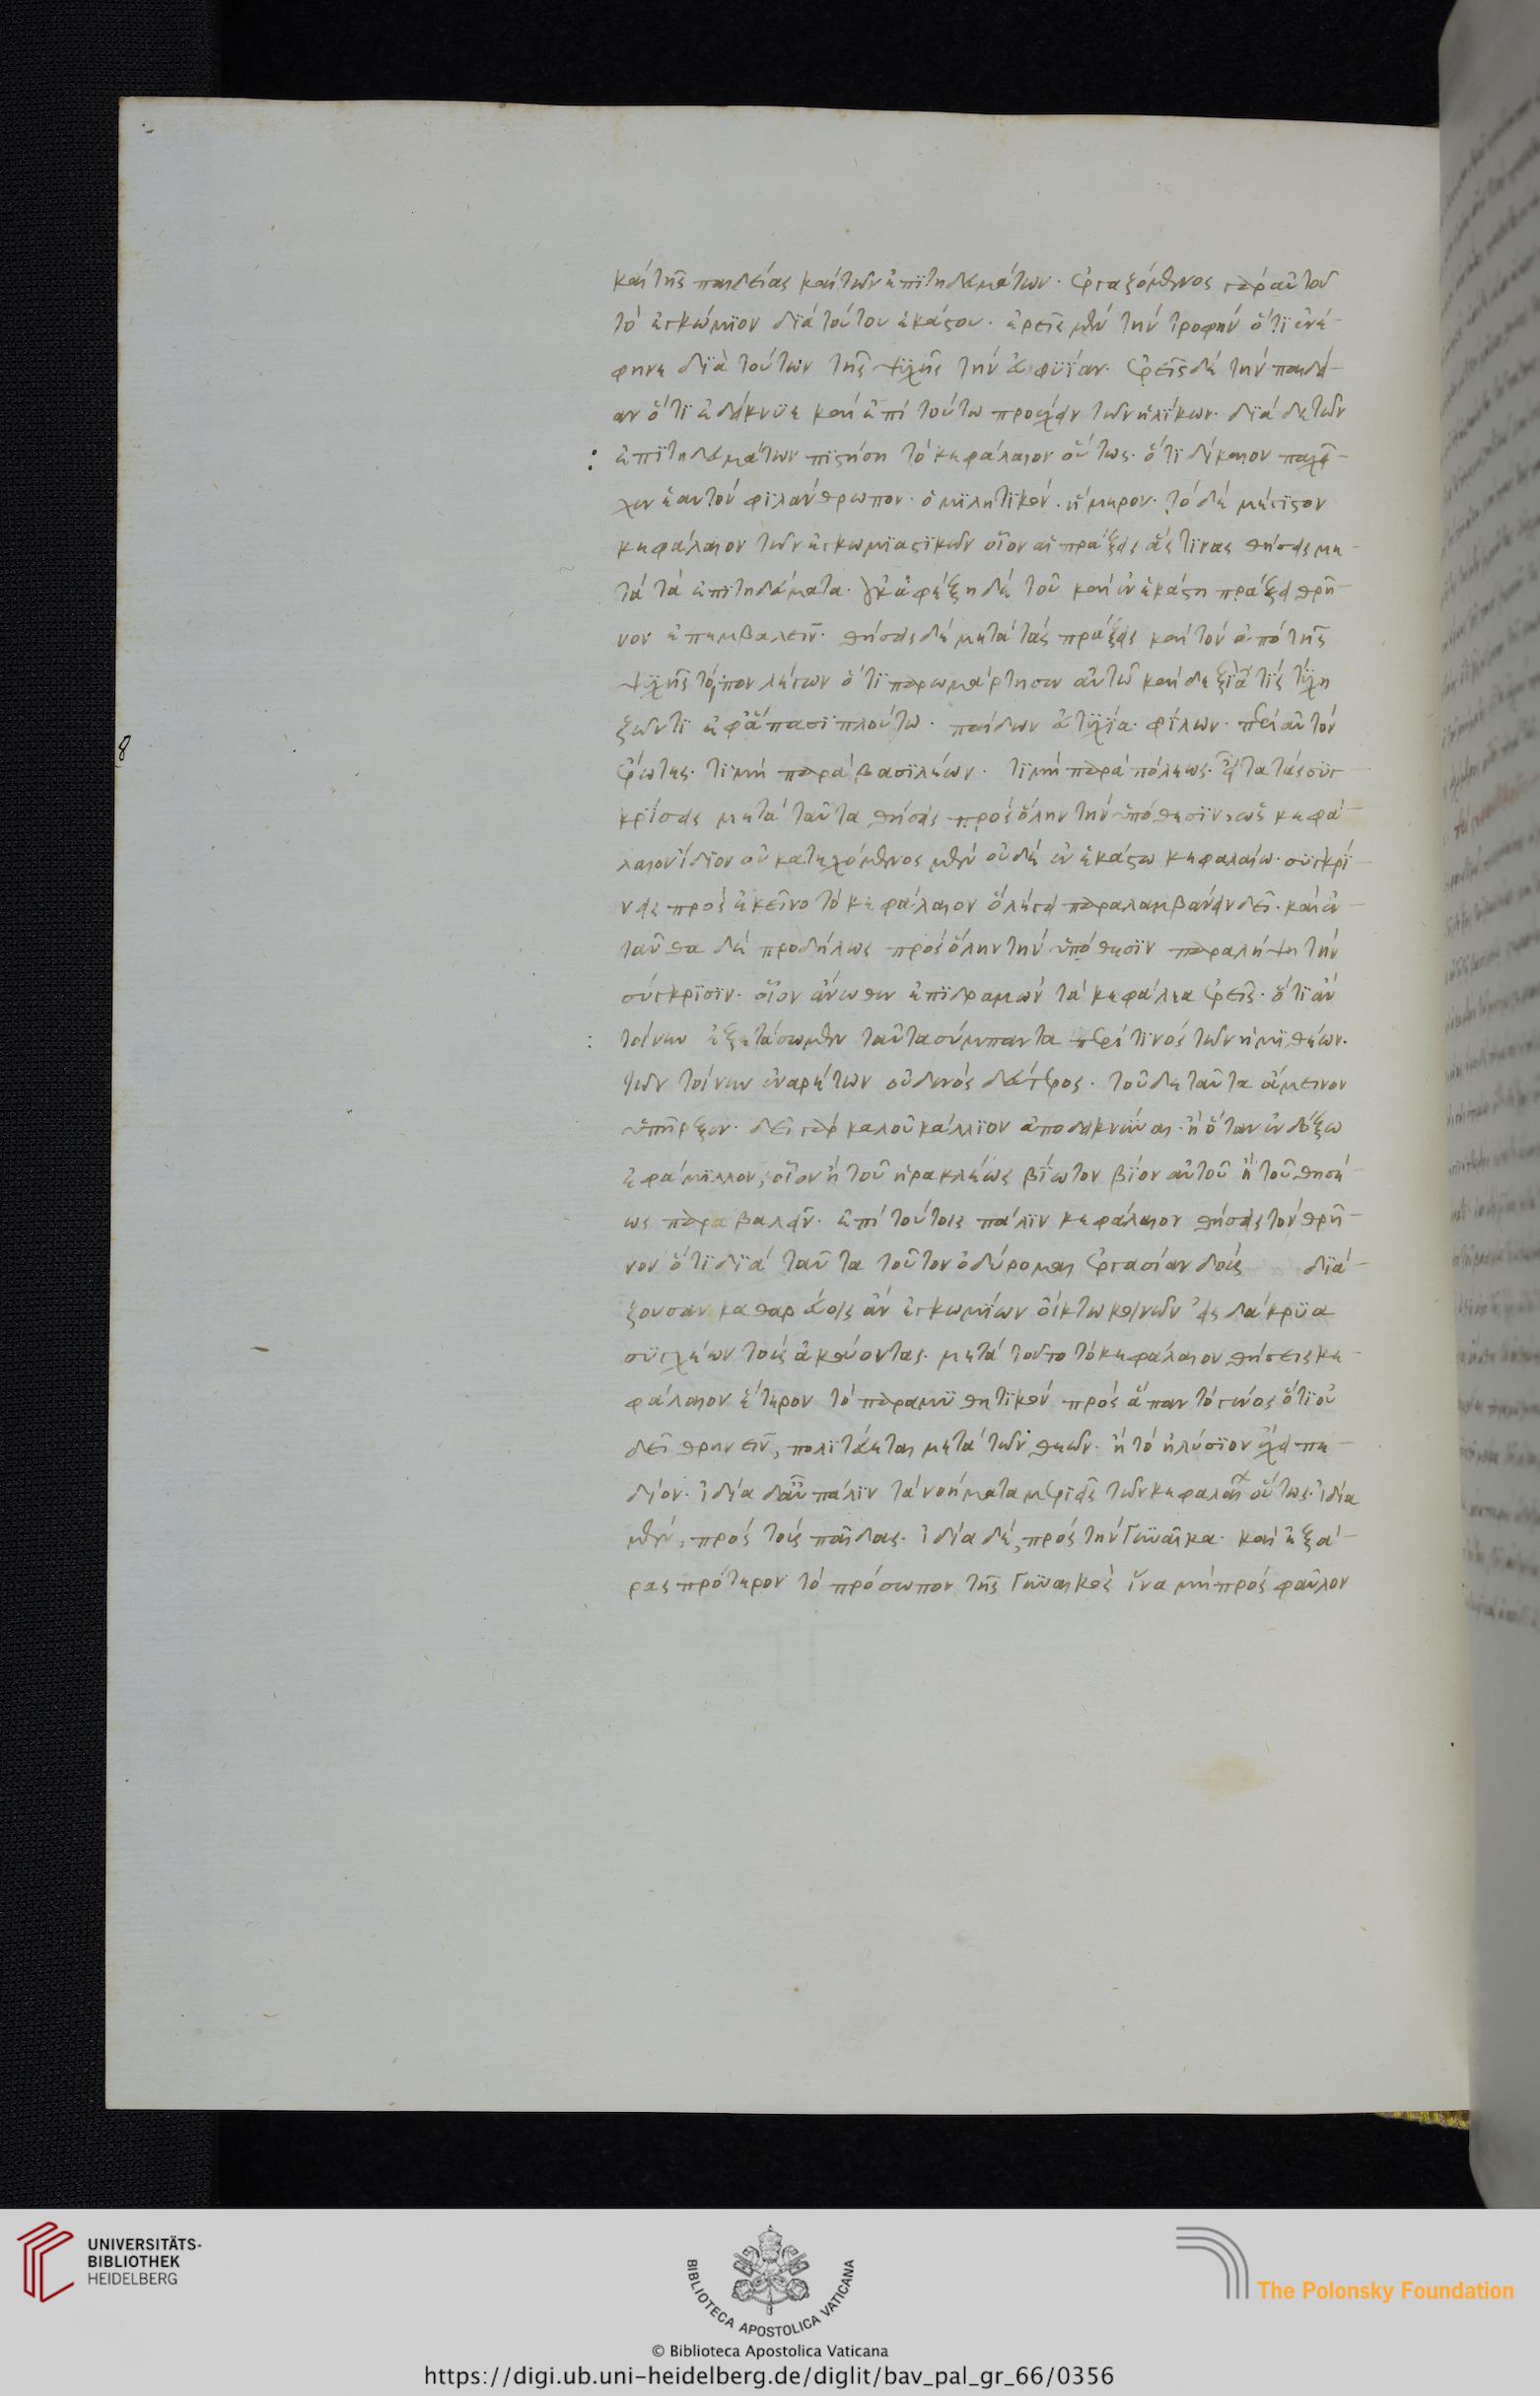 καὶ τῆς παιδείας καὶ τῶν ἐπιτηδευμάτων. ἐργαζόμενος γὰρ αὐτοῦ
τὸ ἐγκώμιον διὰ τούτου ἑκάστου. ἐρεῖς μὲν τὴν τροφὴν ὅτι ἐνέ-
φηνε διὰ τούτων τῆς ψυχῆς τὴν εὐφυΐαν. ἐρεῖς δὲ τὴν παιδεί-
αν ὅτι ἐδείκνυε καὶ ἐπὶ τούτω προέχειν τῶν ἡλίκων. διὰ δὲ τῶν
ἐπιτηδευμάτων πιστώση τὸ κεφάλαιον οὕτως. ὅτι δίκαιον παρεῖ-
χεν ἑαυτὸν φιλάνθρωπον. ὁμιλητικόν. ἥμερον. τὸ δὲ μέγιστον
κεφάλαιον τῶν ἐγκωμιαστικῶν οἷον αἱ πράξεις ἅς τινας θήσεις με-
τὰ τὰ ἐπιτηδεύματα. οὐκ ἀφέξη δὲ τοῦ καὶ ἐν ἑκάστη πράξει θρῆ-
νον ἐπεμβαλεῖν. θήσεις δὲ μετὰ τὰς πράξεις καὶ τὸν ἀπὸ τῆς
τύχης τόπον λέγων ὅτι παρωμάρτησεν αὐτῶ καὶ δεξιὰ τίς τύχη
ζῶντι ἐφ' ἅπασι πλούτω. παίδων εὐτυχία. φίλων. περὶ αὐτὸν
ἔρωτες. τιμὴ παρὰ βασιλέων. τιμὴ παρὰ πόλεως. εἶτα τὰς συγ-
κρίσεις μετὰ ταῦτα θήσεις πρὸς ὅλην τὴν ὑπόθεσιν, ὡς κεφά-
λαιον ἴδιον οὐκ ἀπεχόμενος μὲν οὐδὲ ἐν ἑκάστω κεφαλαίω. συγκρί-
νεις πρὸς ἐκεῖνο τὸ κεφάλαιον ὃ λέγει παραλαμβάνειν δεῖ. καὶ ἐν
ταῦθα δὲ προδήλως πρὸς ὅλην τὴν ὑπόθεσιν παραλήψη τὴν
σύγκρισιν. οἷον ἄνωθεν ἐπιδραμὼν τὰ κεφάλαια ἐρεῖς. ὅτι ἂν
τοίνυν ἐξετάσωμεν ταῦτα σύμπαντα περί τινος τῶν ἡμιθέων.
τῶν τοίνυν ἐναρέτων οὐδενὸς δεύτερος. τοῦδε ταῦτα ἄμεινον
ὑπῆρξεν. δεῖ γὰρ καλοῦ κάλλιον ἀποδεικνύναι. ἢ ὅταν ἐνδόξω
ἐφάμιλλον, οἷον ἢ τοῦ ἡρακλέως βίω τὸν βίον αὐτοῦ ἢ τοῦ θησέ-
ως παραβαλεῖν. ἐπὶ τούτοις πάλιν κεφάλαιον θήσεις τὸν θρῆ-
νον ὅτι διὰ ταῦτα τοῦτον ὀδύρομαι ἐργασίαν δοὺς διά-
ζουσαν καθαρεύοις ἂν ἐγκωμίων οἶκτω κοινῶν εἰς δάκρυα
συγχέων τοὺς ἀκούοντας. μετὰ τοῦτο τὸ κεφάλαιον θήσεις κε-
φάλαιον ἕτερον τὸ παραμυθητικὸν πρὸς ἅπαν τὸ γένος ὅτι οὐ
δεῖ θρηνεῖν, πολιτεύεται μετὰ τῶν θεῶν. ἢ τὸ ἠλύσιον ἔχει πε-
δίον. ἰδία δ' αὖ πάλιν τὰ νοήματα μεριεῖς τῶν κεφαλαίων οὕτως. ἰδία
μὲν, πρὸς τοὺς παῖδας. ἰδία δὲ, πρὸς τὴν γυναῖκα. καὶ ἐξά-
ρας πρότερον τὸ πρόσωπον τῆς γυναικὸς ἵνα μὴ πρὸς φαῦλον
8
UNIVERSITÄTS-
BIBLIOTHEK
HEIDELBERG
BIBLIOTECA APOSTOLICA VATICANA
© Biblioteca Apostolica Vaticana
The Polonsky Foundation
https://digi.ub.uni-heidelberg.de/diglit/bav_pal_gr_66/0356